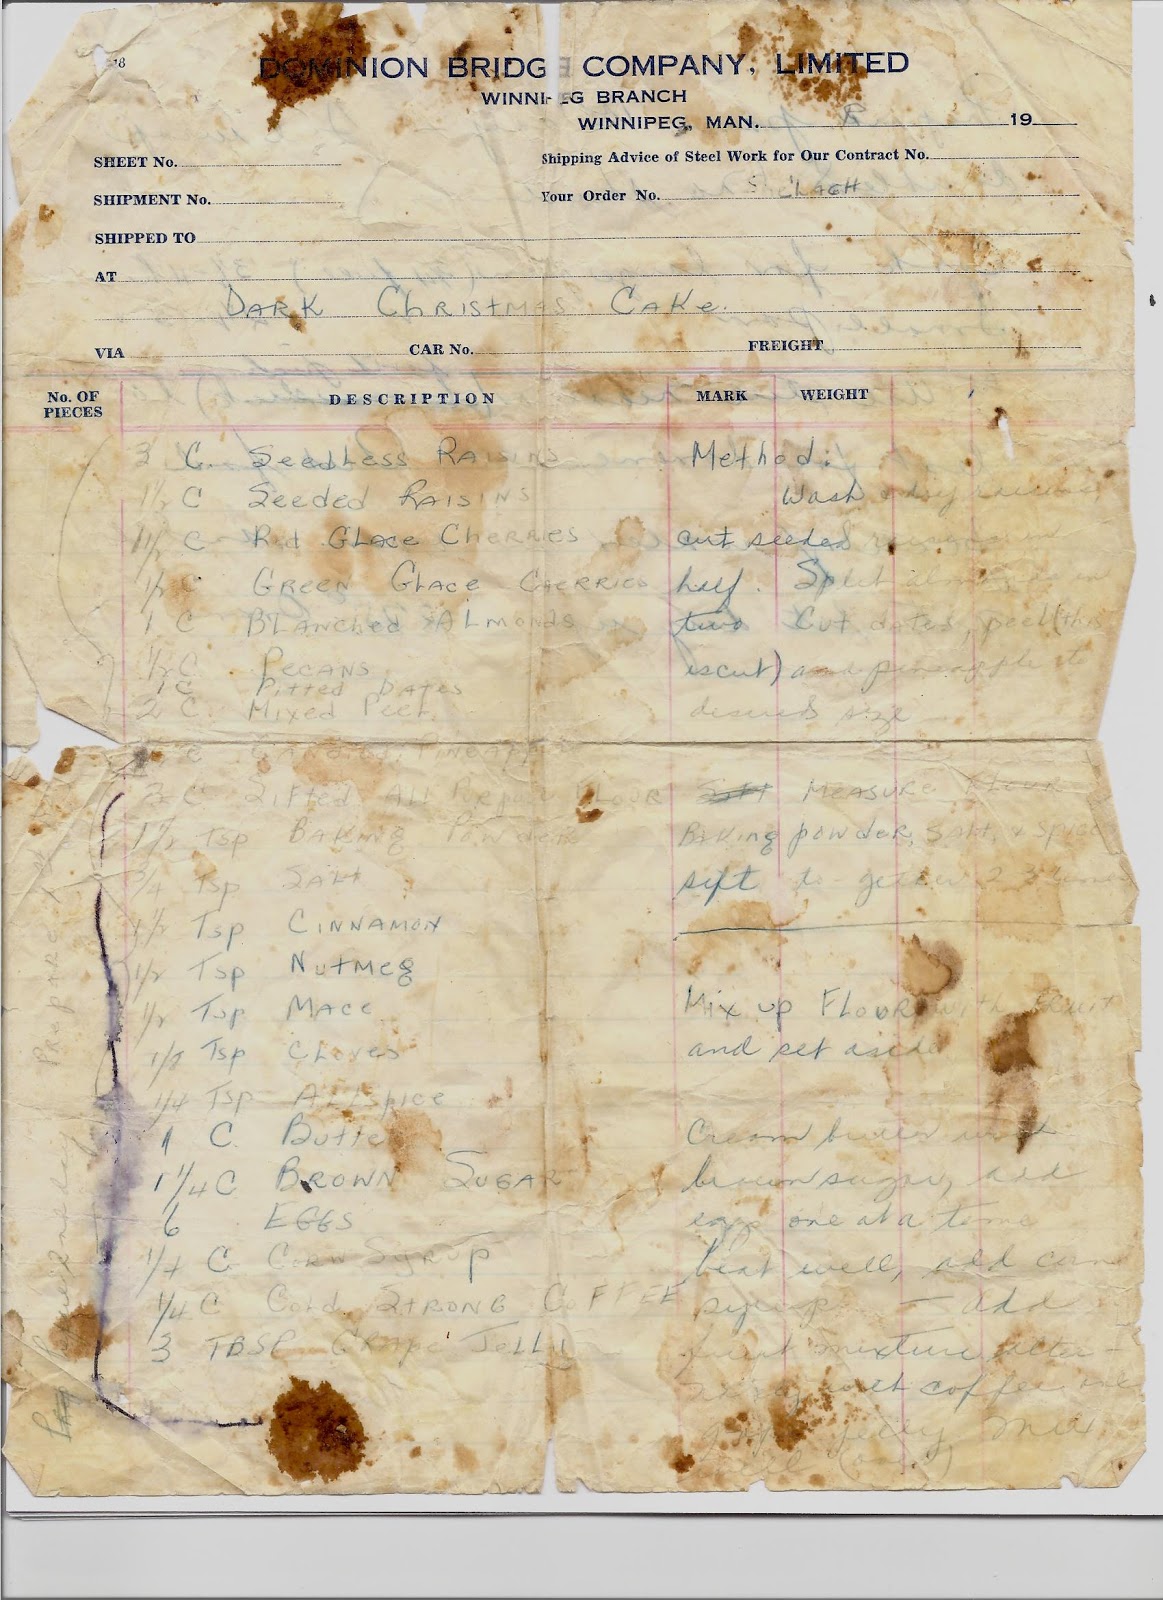 DOMINION BRIDGE COMPANY, LIMITED
WINNIPEG BRANCH
WINNIPEG, MAN. 19
SHEET No.
Shipping Advice of Steel Work for Our Contract No.
SHIPMENT No.
Your Order No.
SHIPPED TO
AT
DARK CHRISTMAS CAKE
VIA CAR No. FREIGHT
No. OF PIECES DESCRIPTION MARK WEIGHT
3 C. SEEDLESS RAISINS
1½ C SEEDED RAISINS
1½ C Red GLACE CHERRIES
½ C GREEN GLACE CHERRIES
1 C BLANCHED ALMONDS
½ C PECANS
1 C PITTED DATES
2 C. MIXED PEEL
C CANDIED PINEAPPLE
C SIFTED ALL PURPOSE FLOUR
1½ Tsp BAKING POWDER
¾ Tsp SALT
1½ Tsp CINNAMON
½ Tsp NUTMEG
½ Tsp MACE
Tsp CLOVES
1/4 Tsp ALLSPICE
1 C. Butter
1 1/4 C BROWN SUGAR
6 EGGS
1/4 C CORN SYRUP
1/4 C COLD STRONG COFFEE
3 TBSP GRAPE JELLY
Method:
Wash & dry raisins
cut seeded raisins in
half. Split almonds in
two Cut dates, peel (this
is cut) and pineapple to
desired size
MEASURE FLOUR
BAKING powder, SALT, & spices
sift to gether 2 3 times
Mix up FLOUR with FRUIT
and set aside
Cream butter with
brown sugar, add
eggs one at a time
beat well, add corn
syrup — add
fruit mixture alter-
with coffee
jelly mix